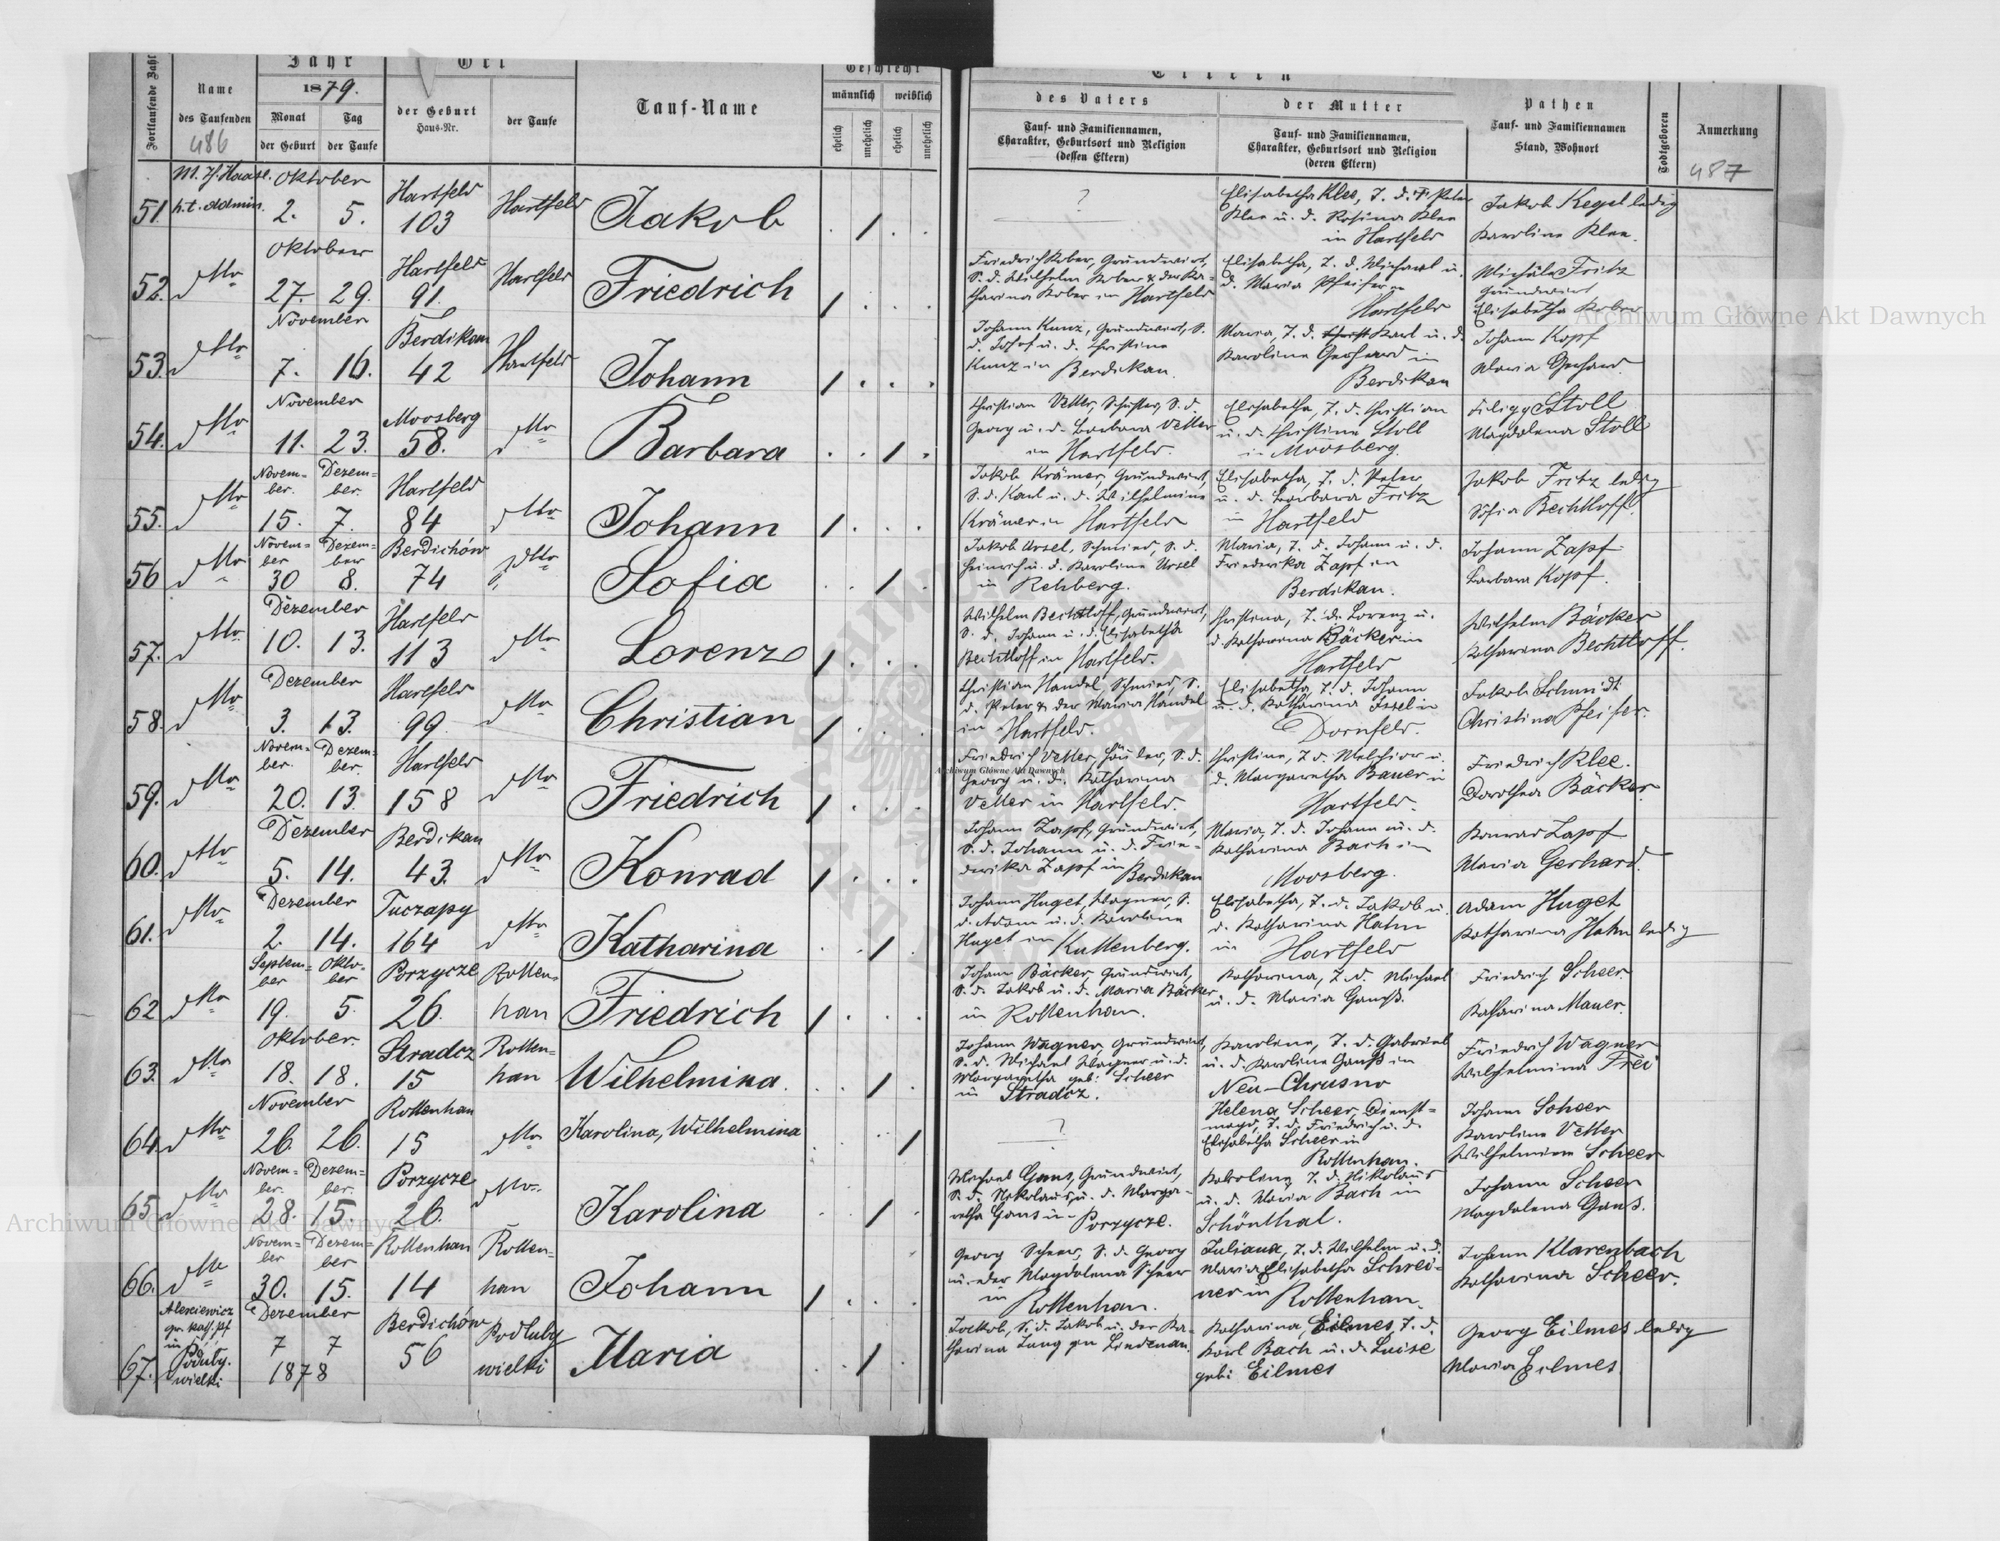 Fortlaufende Zahl
Name
des Taufenden
486
Jahr
1879.
Monat
Tag
der Geburt
der Taufe
Ort
der Geburt
Haus-Nr.
der Taufe
Tauf-Name
Geschlecht
männlich
weiblich
ehelich
unehelich
ehelich
unehelich
Eltern
des Vaters
Tauf- und Familiennamen,
Charakter, Geburtsort und Religion
(dessen Eltern)
der Mutter
Tauf- und Familiennamen,
Charakter, Geburtsort und Religion
(deren Eltern)
Pathen
Tauf- und Familiennamen
Stand, Wohnort
Todtgeboren
Anmerkung
487
51. M. J. Haase. Oktober Hartfeld Hartfeld
h. t. admin. 2. 5. 103 Jakob
?
Elisabetha Klee, T. d. Peter
Klee u. d. Rosina Klee
in Hartfeld
Jakob Kegel ledig
Karoline Klee.
52. dtto Oktober Hartfeld Hartfeld
27. 29. 91. Friedrich
Friedrich Kober, Grundwirt,
S. d. Wilhelm Kober & der Ka-
tharina Kober in Hartfeld
Elisabetha, T. d. Michael u.
d. Maria Pfeifer in
Hartfeld
Fritz
Grundwirt
Elisabetha Kober
53. dtto November Berdikau Hartfeld
7. 16. 42 Johann
Johann Kunz, Grundwirt, S.
d. Josef u. d. Christine
Kunz in Berdikau.
Maria, T. d. Karl u. d.
Karoline Gerhard in
Berdikau
Johann Kopf
Maria Gerhard
54. dtto November Moosberg dtto
11. 23. 58. Barbara
Christian Vetter, Schuster, S. d.
Georg u. d. Barbara Vetter
in Hartfeld.
Elisabetha, T. d. Christian
u. d. Christine Stoll
in Moosberg.
Filipp Stoll
Magdalena Stoll
55. dtto Novem- Dezem- Hartfeld dtto
ber. ber.
15. 7. 84 Johann
Jakob Krämer, Grundwirt,
S. d. Karl u. d. Wilhelmine
Krämer in Hartfeld
Elisabetha, T. d. Peter
u. d. Barbara Fritz
in Hartfeld
Jakob Fritz ledig
Sofia Bechtloff.
56 dtto Novem- Dezem- Berdichów dtto
ber ber
30 8. 74 Sofia
Jakob Ursel, Schmied, S. d.
Heinrich u. d. Karoline Ursel
in Rehberg.
Maria, T. d. Johann u. d.
Friederika Zapf in
Berdikau.
Johann Zapf
Barbara Kopf.
57. dtto Dezember Hartfeld dtto
10. 13. 113 Lorenz
Wilhelm Bechtloff, Grundwirt,
S. d. Johann u. d. Elisabetha
Bechtloff in Hartfeld.
Christina, T. d. Lorenz u.
d. Katharina Bäcker in
Hartfeld
Wilhelm Bäcker
Katharina Bechtloff.
58. dtto Dezember Hartfeld dtto
3. 13. 99 Christian
Christian Handel, Schmied, S.
d. Peter & der Maria Handel
in Hartfeld.
Elisabetha, T. d. Johann
u. d. Katharina Issel in
Dornfeld.
Jakob Schmidt
Christina Pfeifer.
59. dtto Novem- Dezem- Hartfeld dtto
ber. ber.
20. 13. 158 Friedrich
Friedrich Vetter, Häusler, S. d.
Georg u. d. Katharina
Vetter in Hartfeld.
Christine, T. d. Melchior u.
d. Margaretha Bauer in
Hartfeld.
Friedrich Klee.
Dorothea Bäcker.
60. dtto Dezember Berdikau dtto
5. 14. 43. Konrad
Johann Zapf, Grundwirt,
S. d. Johann u. d. Frie-
derika Zapf in Berdikau
Maria, T. d. Johann u. d.
Katharina Bach in
Moosberg.
Konrad Zapf
Maria Gerhard.
61. dtto Dezember Tuczapy dtto
2. 14. 164 Katharina
Johann Huget, Wagner, S.
d. Adam u. d. Karoline
Huget in Kuttenberg.
Elisabetha, T. d. Jakob u.
d. Katharina Hahn
in Hartfeld
Adam Huget
Katharina Hahn ledig
62 dtto Septem- Okto- Porzycze Rotten-
ber ber
19. 5. 26. han Friedrich
Johann Bäcker, Grundwirt,
S. d. Jakob u. d. Maria Bäcker
in Rottenhan.
Katharina, T. d. Michael
u. d. Maria Ganß.
Friedrich Scheer
Katharina Mauer.
63. dtto Oktober. Stradcz Rotten-
18. 18. 15 han Wilhelmina.
Johann Wagner, Grundwirt,
S. d. Michael Wagner u. d.
Margaretha geb: Scheer
in Stradcz.
Karolena, T. d. Gabriel
u. d. Karoline Ganß in
Neu-Chrusno
Friedrich Wagner
Wilhelmina Frei
64. dtto November Rottenhan dtto
26. 26. 15 Karolina, Wilhelmina
?
Helena Scheer, Dienst-
magd, T. d. Friedrich u. d.
Elisabetha Scheer in
Rottenhan.
Johann Scheer
Karoline Vetter
Wilhelmine Scheer
65. dtto Novem- Dezem- Porzycze dtto
ber. ber.
28. 15. 26. Karolina
Michael Gans, Grundwirt,
S. d. Nikolaus u. d. Marga-
retha Gans in Porzycze.
T. d. Nikolaus
u. d. Maria Bach in
Schönthal.
Johann Scheer
Magdalena Gans.
66. dtto Novem- Dezem- Rottenhan Rotten-
ber ber
30. 15. 14 han Johann
Georg Scheer, S. d. Georg
u. der Magdalena Scheer
in Rottenhan.
Juliana, T. d. Wilhelm u. d.
Maria Elisabetha Schrei-
ner in Rottenhan.
Johann Klarenbach
Katharina Scheer.
67. Alexiewicz Dezember Berdichów Podluby
gr. kath. Pf
in
Poduby. 7 7 56 wielki Maria
wielki 1878
Jackob, S. d. Jakob u. der Ka-
tharina Jung zu Lindenau.
Katharina Eilmes, T. d.
Karl Bach u. d. Luise
geb: Eilmes
Georg Eilmes ledig
Maria Eilmes
Archiwum Główne Akt Dawnych
Archiwum Główne Akt Dawnych
Archiwum Główne Akt Dawnych